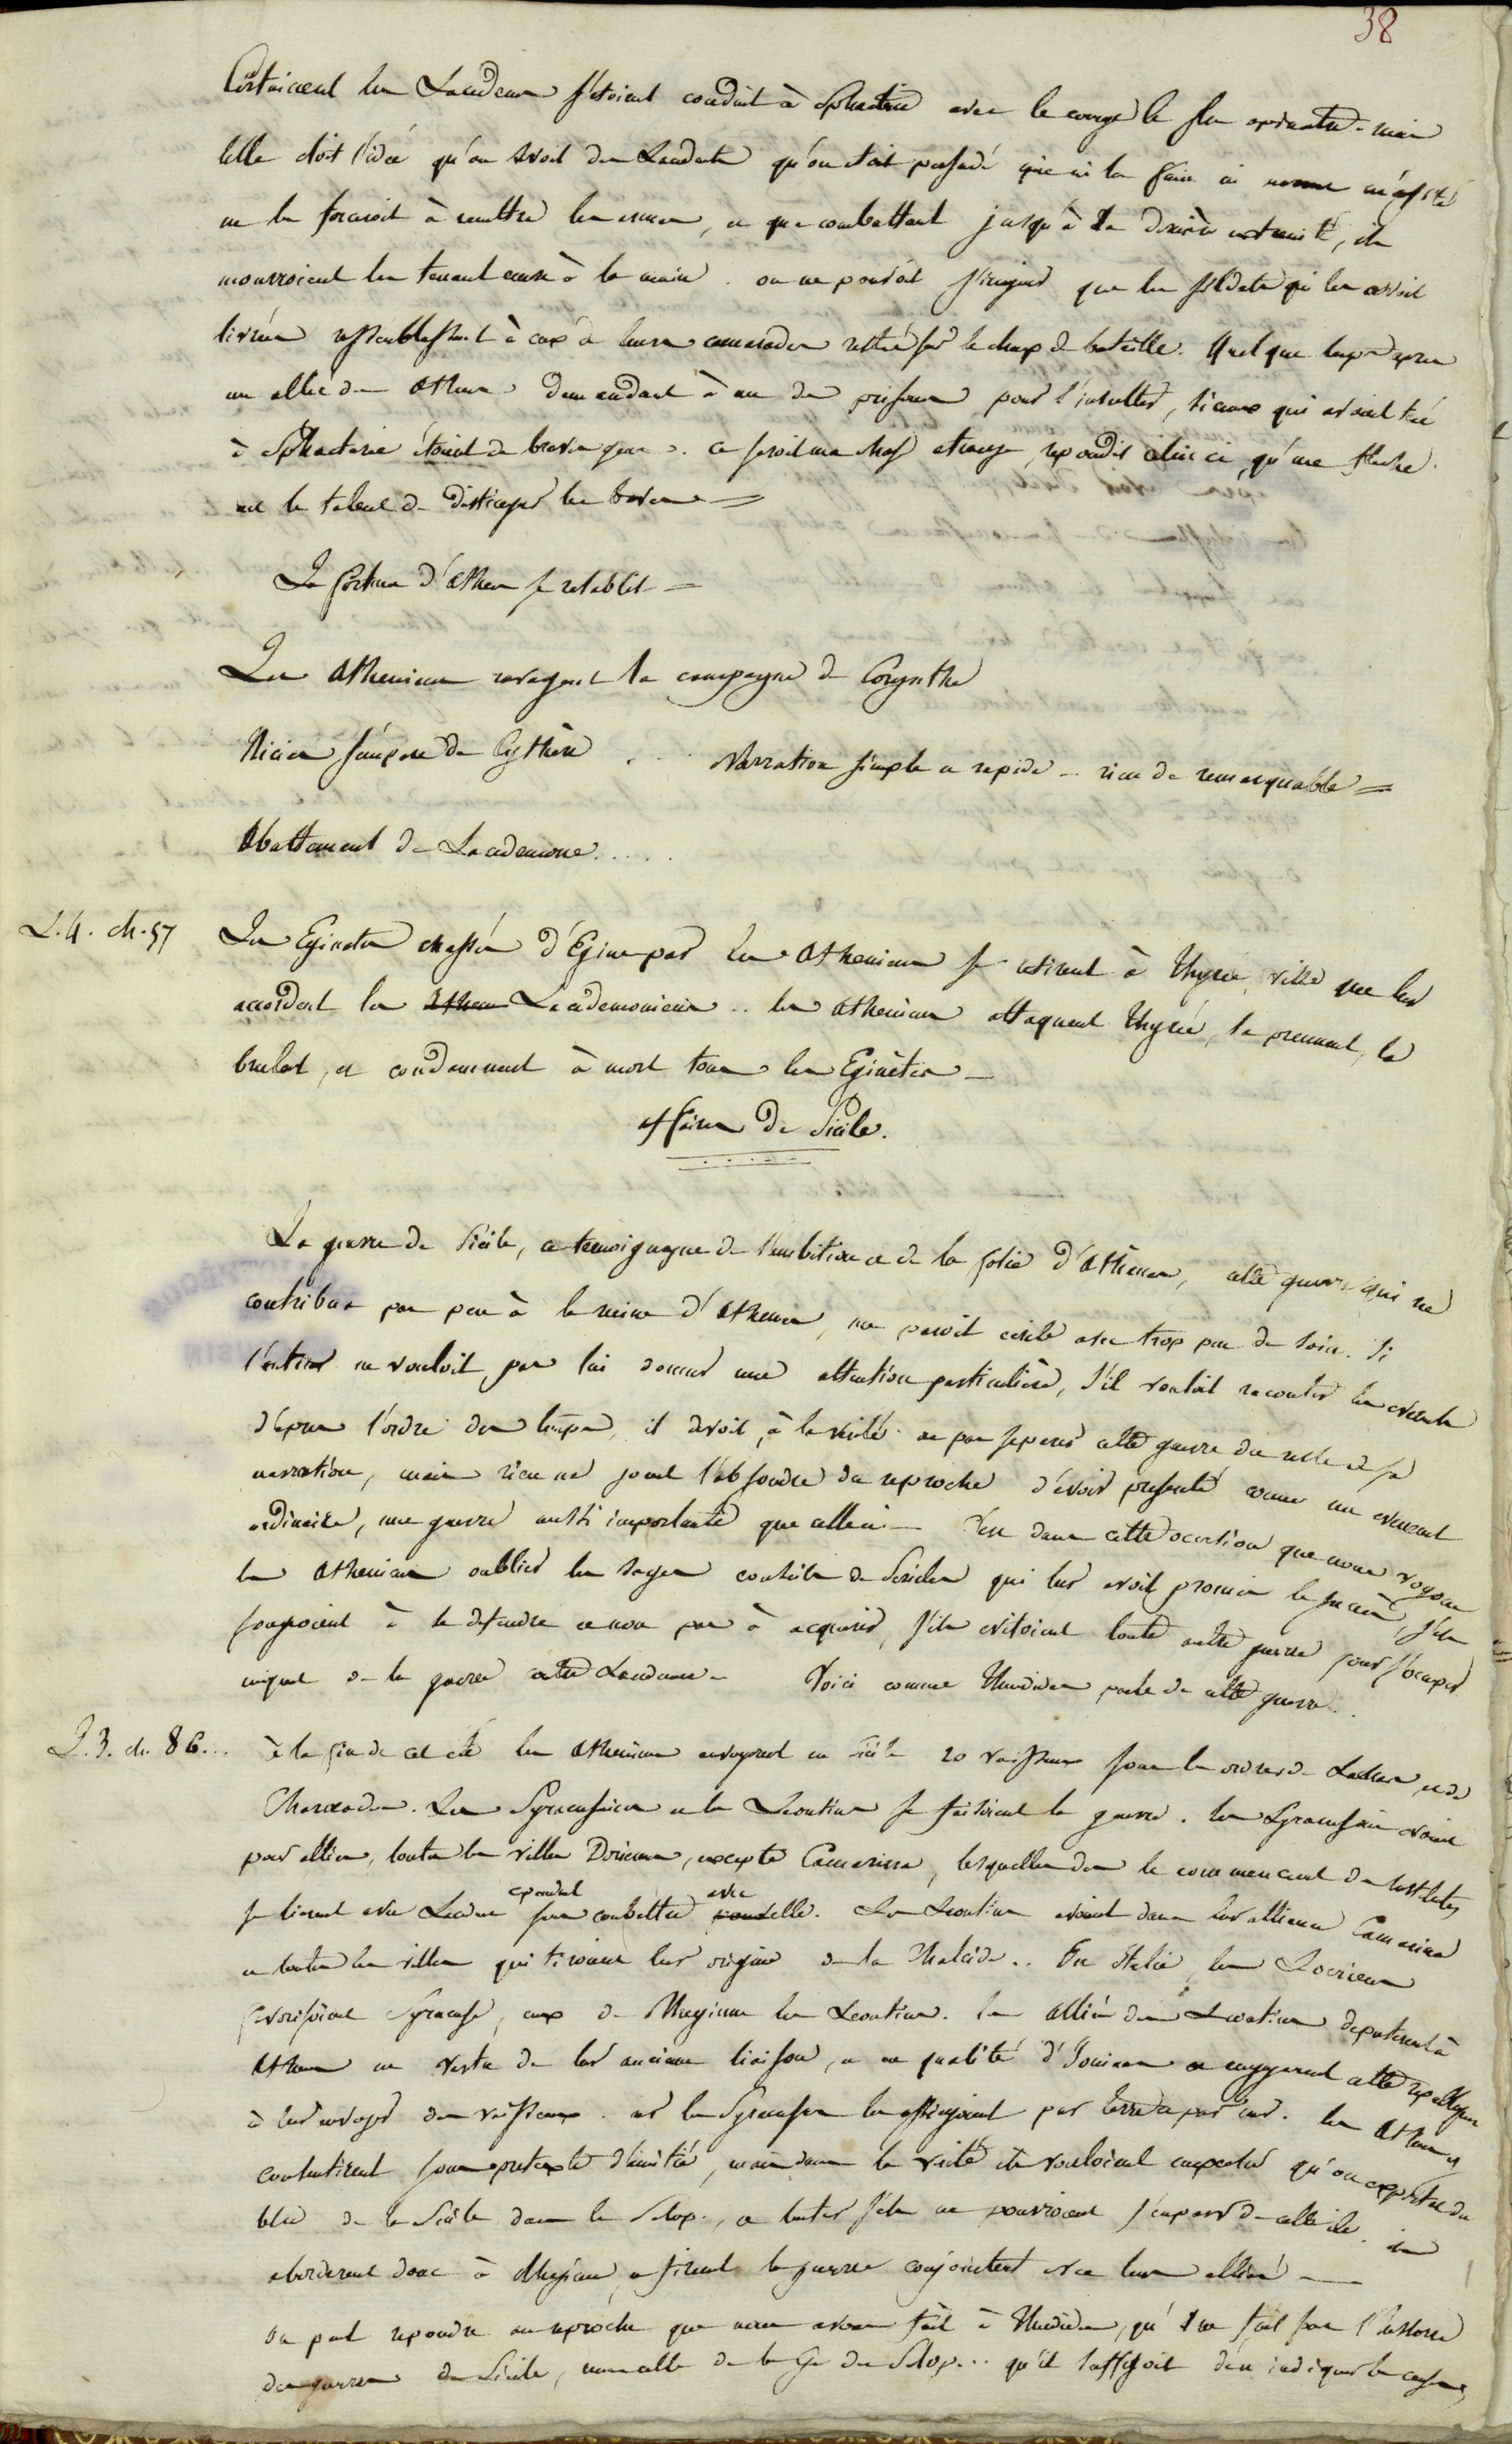 38
Certainement les Lacedem s'etoient conduit à Sphacterie avec le courage le plus opiniatre - mais
telle etoit l'idée qu'on avoit des Lacedem qu'on etoit persuadé que ni la faim ni aucune nécessité
ne les forceroit à mettre les armes, et que combattant jusqu'à la derniere extremité, ils
mourroient les tenant encore à la main. on ne pouvoit s'imaginer que les soldats qui les avoient
livrées ressemblassent à ceux de leurs camarades restés sur le champ de bataille. Quelque temps apres
un allié des Athen. demandant à un des prisonn. pour l'insulter, si ceux qui avoient été tué
à Sphacterie étoient de braves gens. ce seroit une chose etrange, repondit celui ci, qu'une fleche
eut le talent de distinguer les braves =
La fortune d'Athen se retablit =
Les Atheniens ravagent la campagne de Corynthe
Nicias s'empare de Cythère . . . Narration simple et rapide - rien de remarquable =
Abattement de Lacedemone. . . . .
L. 4. ch. 57
Les Eginetes chassés d'Egine par les Atheniens se retirent à Thyrée, ville que leur
accordent les Athen Lacedemoniens .. les Atheniens attaquent Thyrée, la prennent, la
brulent, et condamnent à mort tous les Eginètes -
affaires de Sicile.
La guerre de Sicile, ce temoignage de l'ambition et de la folie d'Athènes, cette guerre qui ne
contribua pas peu à la ruine d'Athenes, me paroit ecrite avec trop peu de soin. Si
l'auteur ne vouloit pas lui donner une attention particulière, s'il vouloit raconter les evenements
d'apres l'ordre des temps, il devoit, à la vérité ne pas separer cette guerre du reste de sa
narration, mais rien ne peut l'absoudre du reproche d'avoir presenté comme un evenement
ordinaire, une guerre aussi importante que celle ci - C'est dans cette occasion que nous voyons
les Atheniens oublier les sages conseils de Pericles qui leur avoit promis le succès, s'ils
songeoient à se defendre et non pas à acquerir, s'ils evitoient toute autre guerre pour s'occuper
uniquement de la guerre contre Lacedemone - Voici comme Thucidides parle de cette guerre . .
L. 3. ch. 86...
à la fin de cet été les Atheniens envoyerent en Sicile 20 vaisseaux sous les ordres de Lachès et de
Charoeades. Les Syracusains et les Leontins se faisoient la guerre. les Syracusains avoient
pour alliés, toutes les villes Doriennes, excepté Camarina, lesquelles des le commencement des hostilités
se lierent avec Lacedem cependant sans combattre avec elle. Les Leontins avoient dans leur alliance Camarina
et toutes les villes qui tiroient leur origine de la Chalcide .. En Italie, les Locriens
favorisoient Syracuse, ceux de Rhegium les Leontins. les alliés des Leontins deputerent à
Athenes en vertu de leur ancienne liaison, et en qualité d'Ioniens et engagerent cette republique
à leur envoyer des vaisseaux. car les Syracusains les assiegeoient par terre et par mer. les Athen. y
consentirent sous pretexte d'amitié, mais dans la vérité ils vouloient empecher qu'on exportat du
bled de la Sicile dans le Pelop., et tenter s'ils ne pourroient s'emparer de cette ile. ils
aborderent donc à Rhegium, et firent la guerre conjointement avec leurs alliés —
On peut repondre au reproche que nous avons fait à Thucidides, qu'il ne fait pas l'histoire
des guerres de Sicile, mais celle de la Gre du Pelop... qu'il suffisoit d'en indiquer les causes,